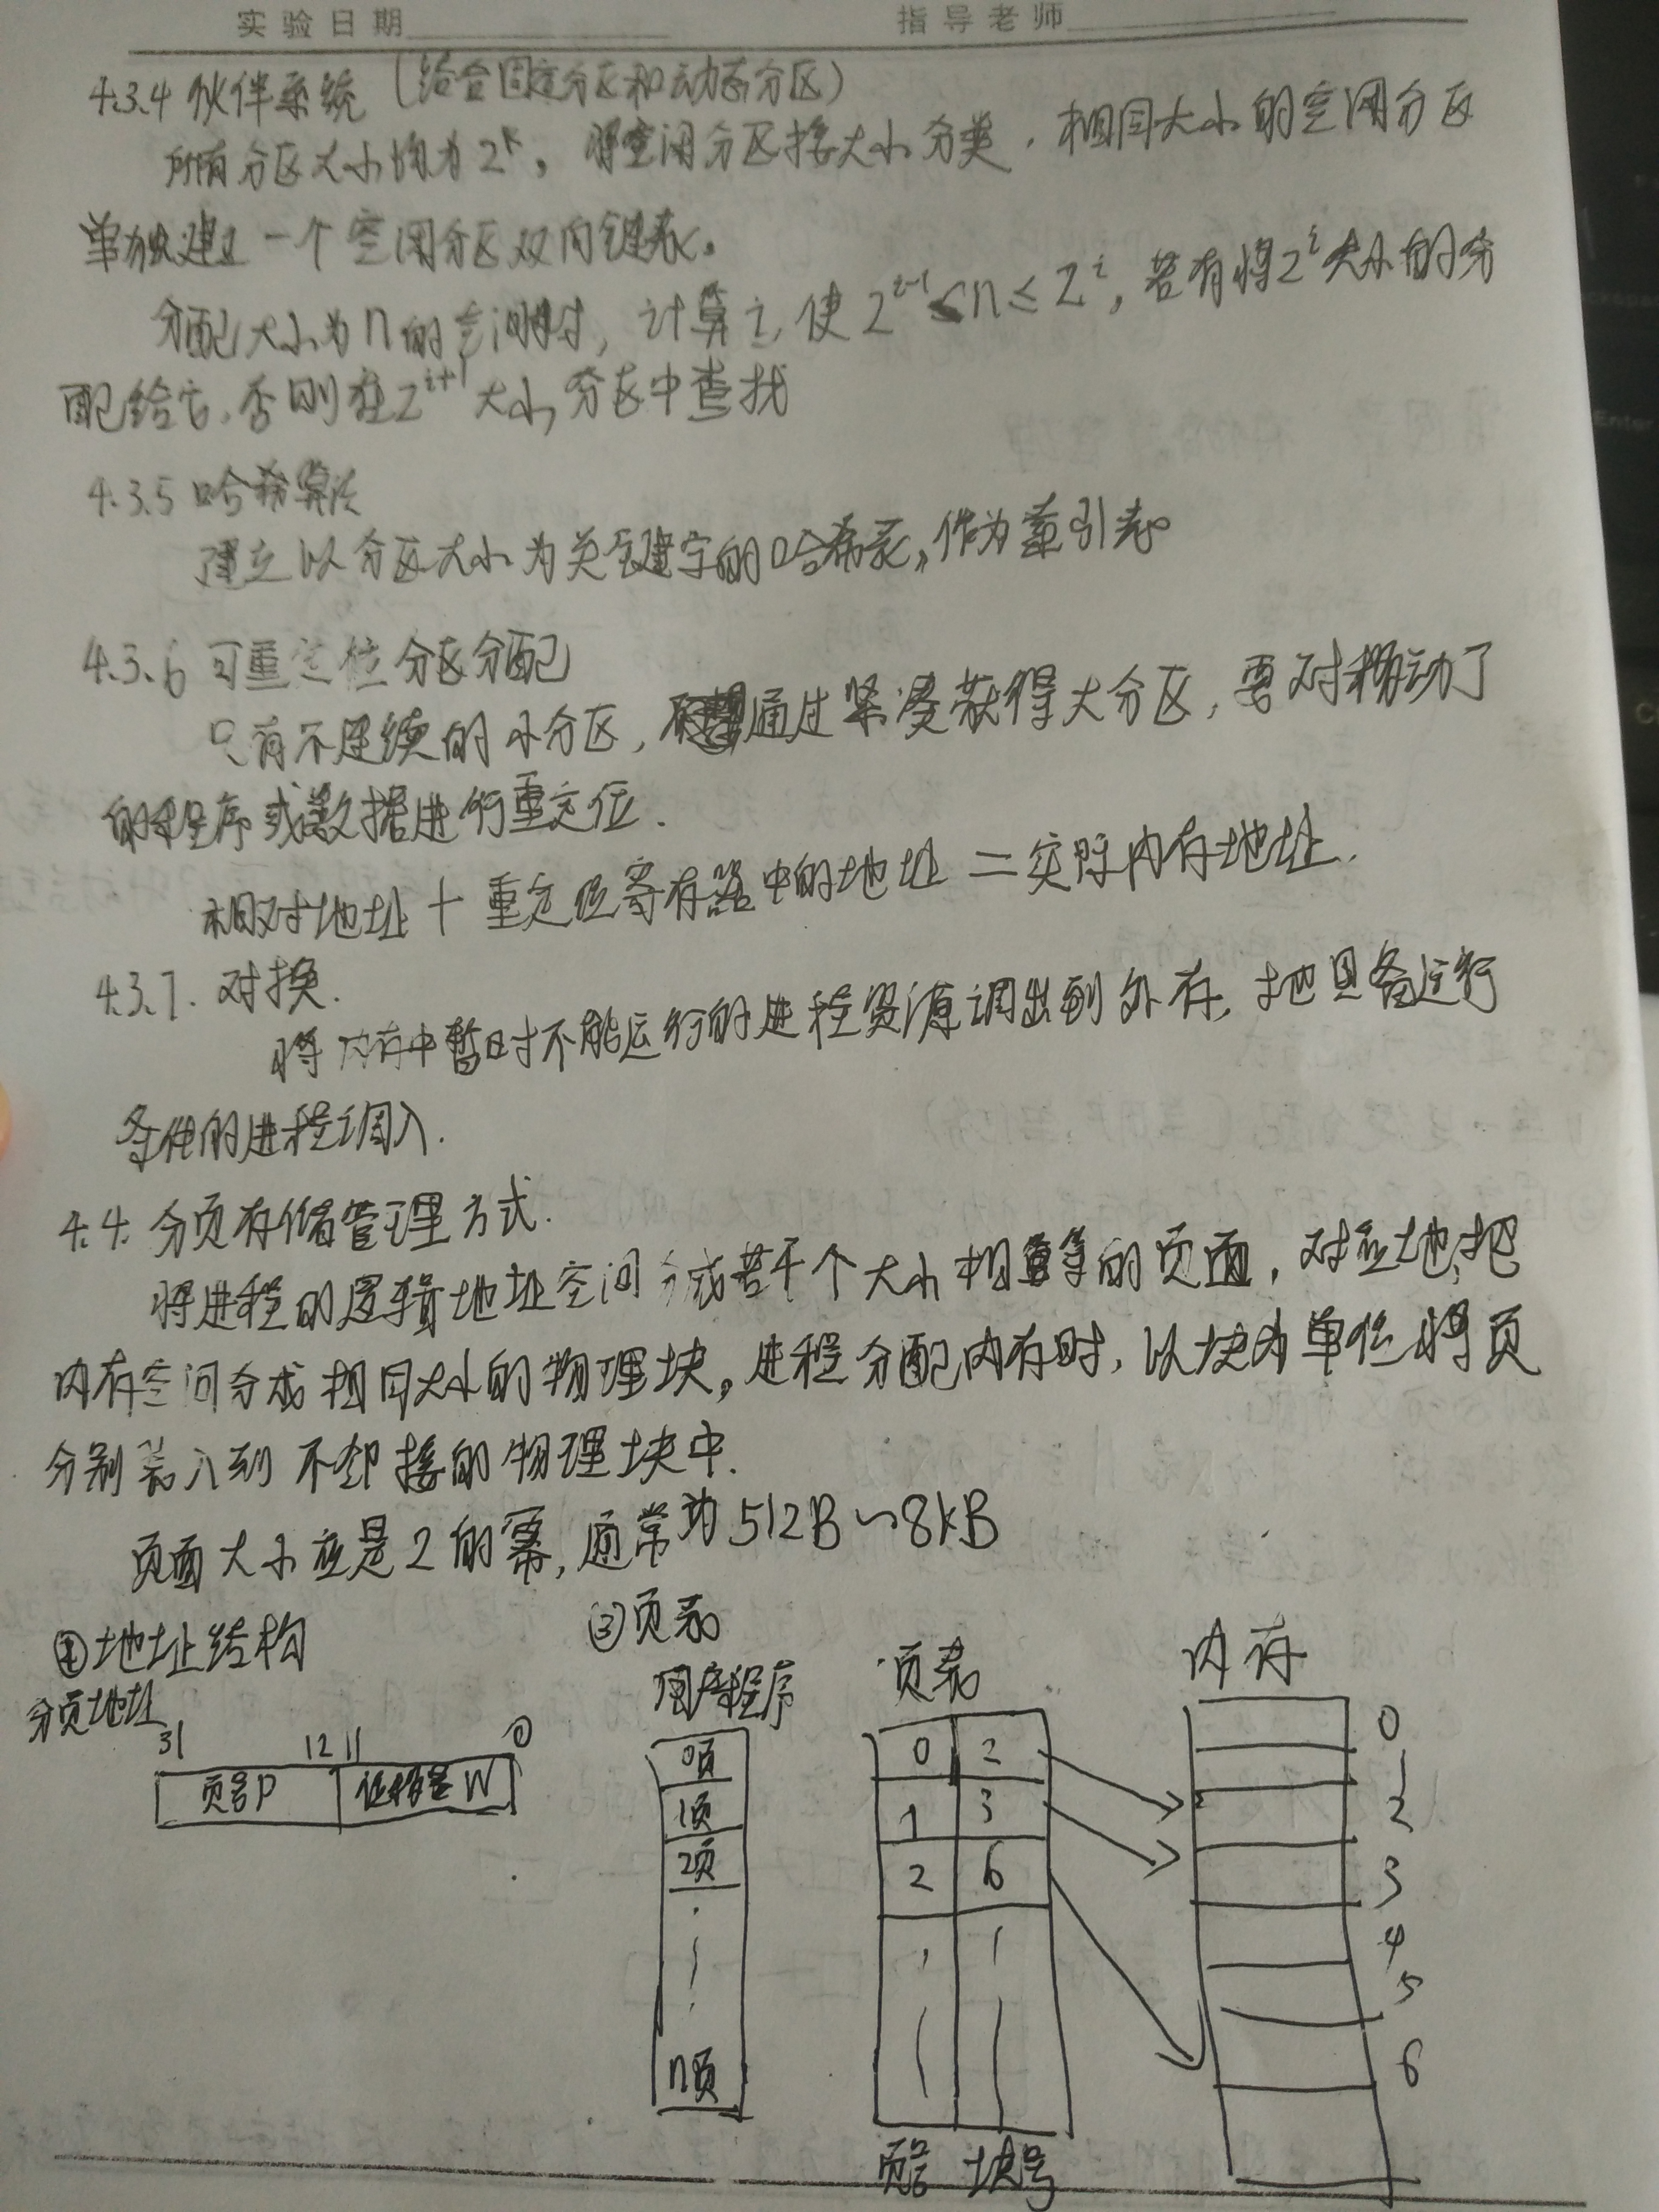 实验日期 指导老师
4.3.4 伙伴系统 (结合固定分区和动态分区)
所有分区大小均为2^k, 将空闲分区按大小分类, 相同大小的空闲分区
单独建立一个空闲分区双向链表。
分配大小为n的空间时, 计算i, 使2^{i-1}≤n≤2^i, 若有将2^i大小的分
配给它, 否则在2^{i+1}大小分区中查找
4.3.5 哈希算法
建立以分区大小为关键字的哈希表, 作为索引表
4.3.6 可重定位分区分配
只有不连续的小分区, 通过紧凑获得大分区, 要对移动了
的程序或数据进行重定位.
相对地址+重定位寄存器中的地址=实际内存地址.
4.3.7. 对换.
将内存中暂时不能运行的进程资源调出到外存, 把具备运行
条件的进程调入.
4.4. 分页存储管理方式.
将进程的逻辑地址空间分成若干个大小相等的页面, 对应地, 把
内存空间分成相同大小的物理块, 进程分配内存时, 以块为单位将页
分别装入到不邻接的物理块中.
页面大小应是2的幂, 通常为512B~8kB
①地址结构 ②页表
分页地址 用户程序 页表 内存
31 12 11 0
页号P 位移量W
0页 0 2 0
1页 1 3 1
2页 2 6 2
3
4
5
6
n页
页号 块号